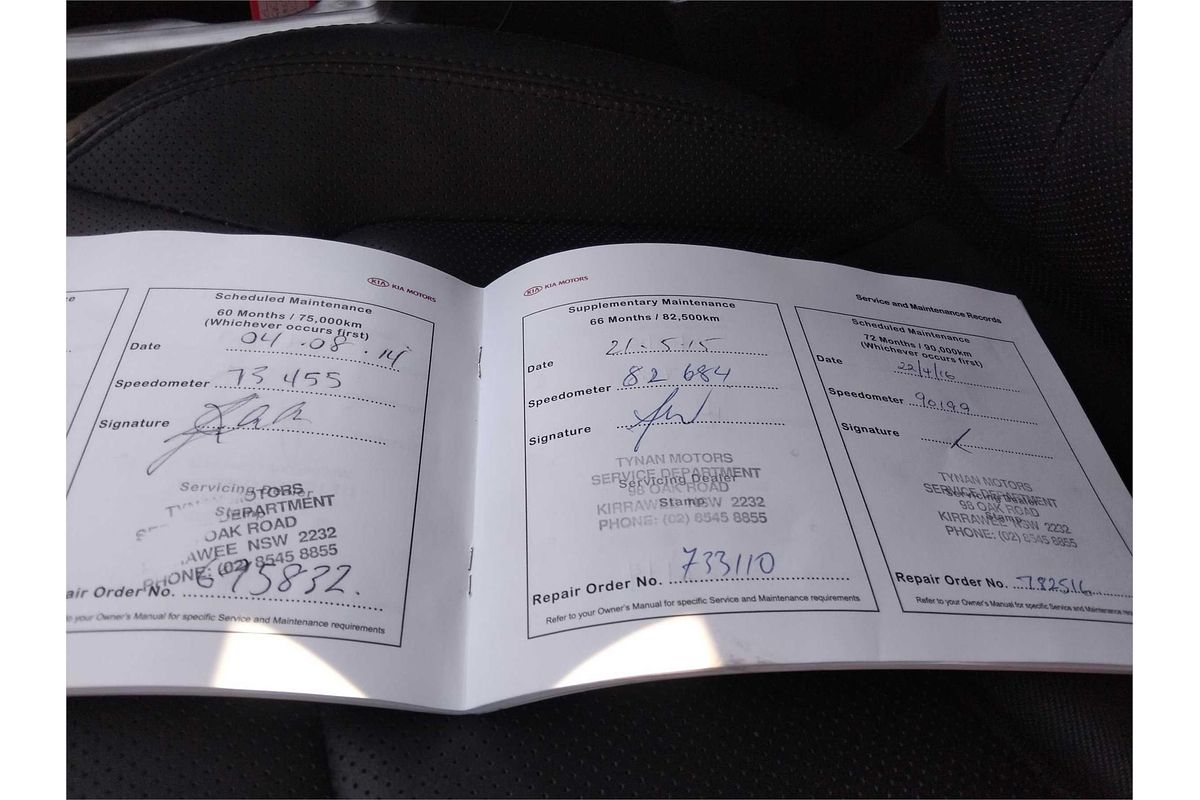 KIA MOTORS
Scheduled Maintenance
60 Months / 75,000km
(Whichever occurs first)
Date 04.08.14
Speedometer 73 455
Signature
Servicing Dealer
Stamp
TORS
DEPARTMENT
OAK ROAD
AWEE NSW 2232
PHONE: (02) 8545 8855
air Order No. 695832.
your Owner's Manual for specific Service and Maintenance requirements
KIA KIA MOTORS
Supplementary Maintenance
66 Months / 82,500km
Date 21.5.15
Speedometer 82 684
Signature
TYNAN MOTORS
SERVICE DEPARTMENT
Servicing Dealer
98 OAK ROAD
Stamp
KIRRAWEE NSW 2232
PHONE: (02) 8545 8855
Repair Order No. 733110
Refer to your Owner's Manual for specific Service and Maintenance requirements
Service and Maintenance Records
Scheduled Maintenance
72 Months / 90,000km
(Whichever occurs first)
Date 22/4/16
Speedometer 90199
Signature
TYNAN MOTORS
SERVICE DEPARTMENT
Servicing Dealer
98 OAK ROAD
Stamp
KIRRAWEE NSW 2232
PHONE: (02) 8545 8855
Repair Order No. 782516
Refer to your Owner's Manual for specific Service and Maintenance req